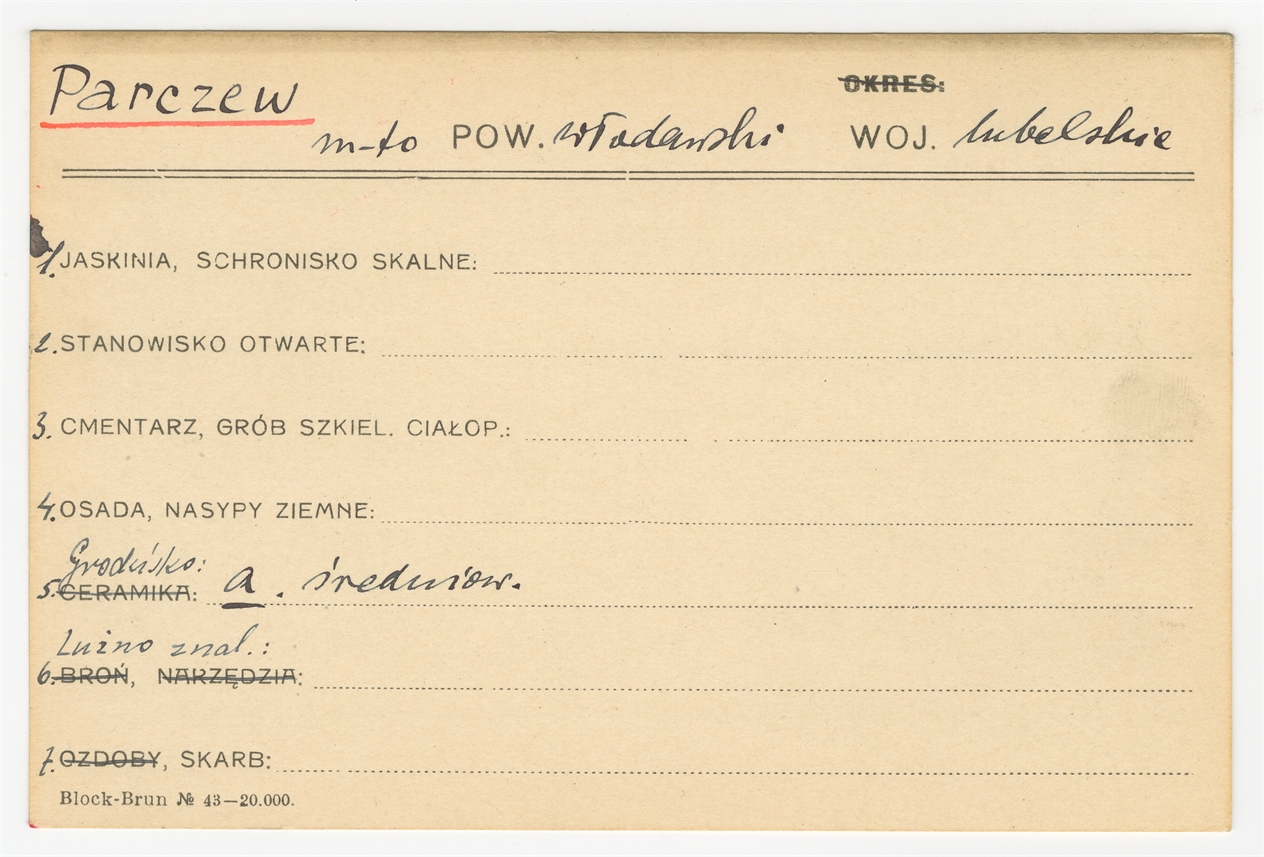 Parczew
OKRES:
m-to POW. włodawski WOJ. lubelskie
1. JASKINIA, SCHRONISKO SKALNE:
2. STANOWISKO OTWARTE:
3. CMENTARZ, GRÓB SZKIEL. CIAŁOP.:
4. OSADA, NASYPY ZIEMNE:
Grodzisko:
5. CERAMIKA: a. średniow.
Luźno znal.:
6. BROŃ, NARZĘDZIA:
7. OZDOBY, SKARB:
Block-Brun № 43—20.000.